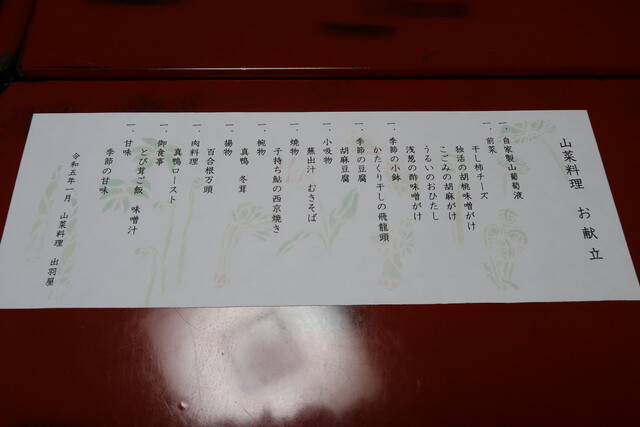 山菜料理 お献立
一、自家製山葡萄液
一、前菜
干し柿チーズ
独活の胡桃味噌がけ
こごみの胡麻がけ
うるいのおひたし
浅葱の酢味噌がけ
一、季節の小鉢
かたくり干しの飛龍頭
一、季節の豆腐
胡麻豆腐
一、小吸物
蕪出汁 むきそば
一、焼物
子持ち鮎の西京焼き
一、椀物
真鴨 冬茸
一、揚物
百合根万頭
一、肉料理
真鴨ロースト
一、御食事
とび茸ご飯 味噌汁
一、甘味
季節の甘味
令和五年一月 山菜料理 出羽屋